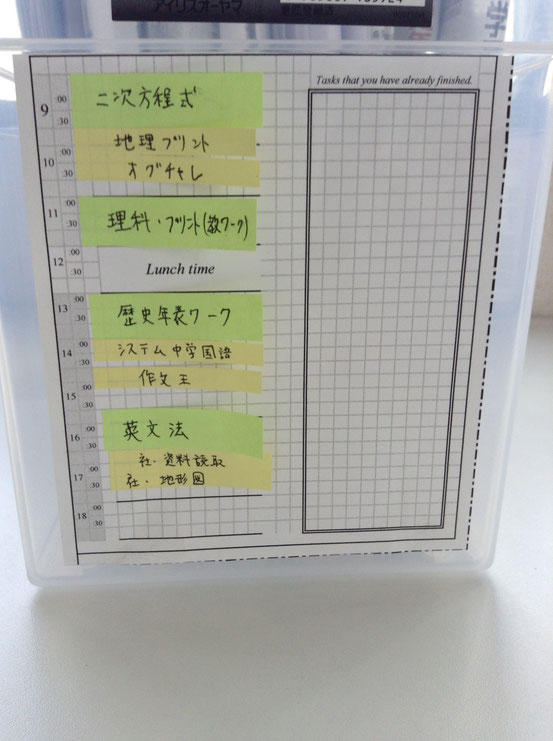 アイリスオーヤマ
Tasks that you have already finished.
9 :00 二次方程式
:30
10 :00 地理プリント
:30 オグチャレ
11 :00 理科・プリント(教ワーク)
:30
12 :00 Lunch time
:30
13 :00 歴史年表ワーク
:30
14 :00 システム中学国語
:30 作文王
15 :00
:30
16 :00 英文法
:30
17 :00 社.資料読取
:30 社.地形図
18 :00
:30